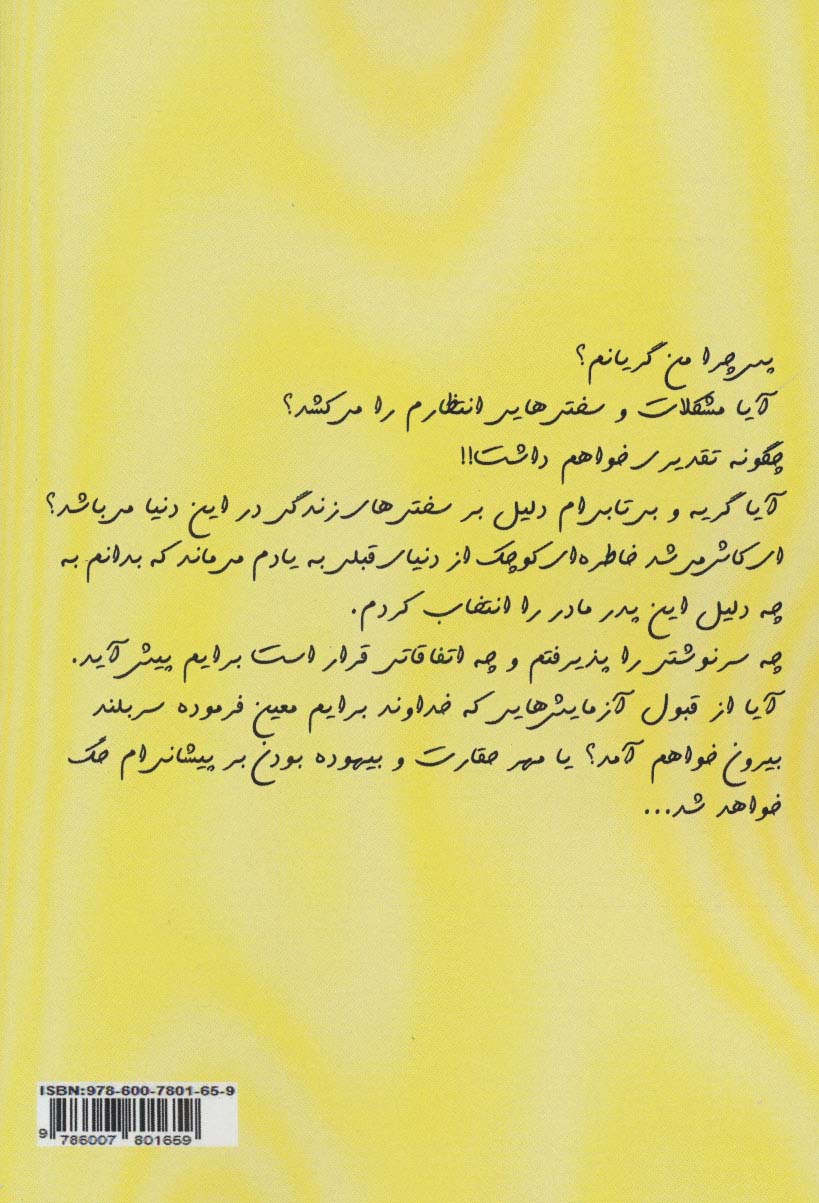 پس چرا من گریانم؟
آیا مشکلات و سختی‌هایی انتظارم را می‌کشد؟
چگونه تقدیری خواهم داشت!!
آیا گریه و بی‌تابی‌ام دلیل بر سختی‌های زندگی در این دنیا می‌باشد؟
ای کاش می‌شد خاطره‌ای کوچک از دنیای قبلی به یادم می‌ماند که بدانم به
چه دلیل این پدر مادر را انتخاب کردم.
چه سرنوشتی را پذیرفتم و چه اتفاقاتی قرار است برایم پیش آید.
آیا از قبول آزمایش‌هایی که خداوند برایم معین فرموده سربلند
بیرون خواهم آمد؟ یا مهر حقارت و بیهوده بودن بر پیشانی‌ام حک
خواهد شد...
ISBN:978-600-7801-65-9
9 786007 801659